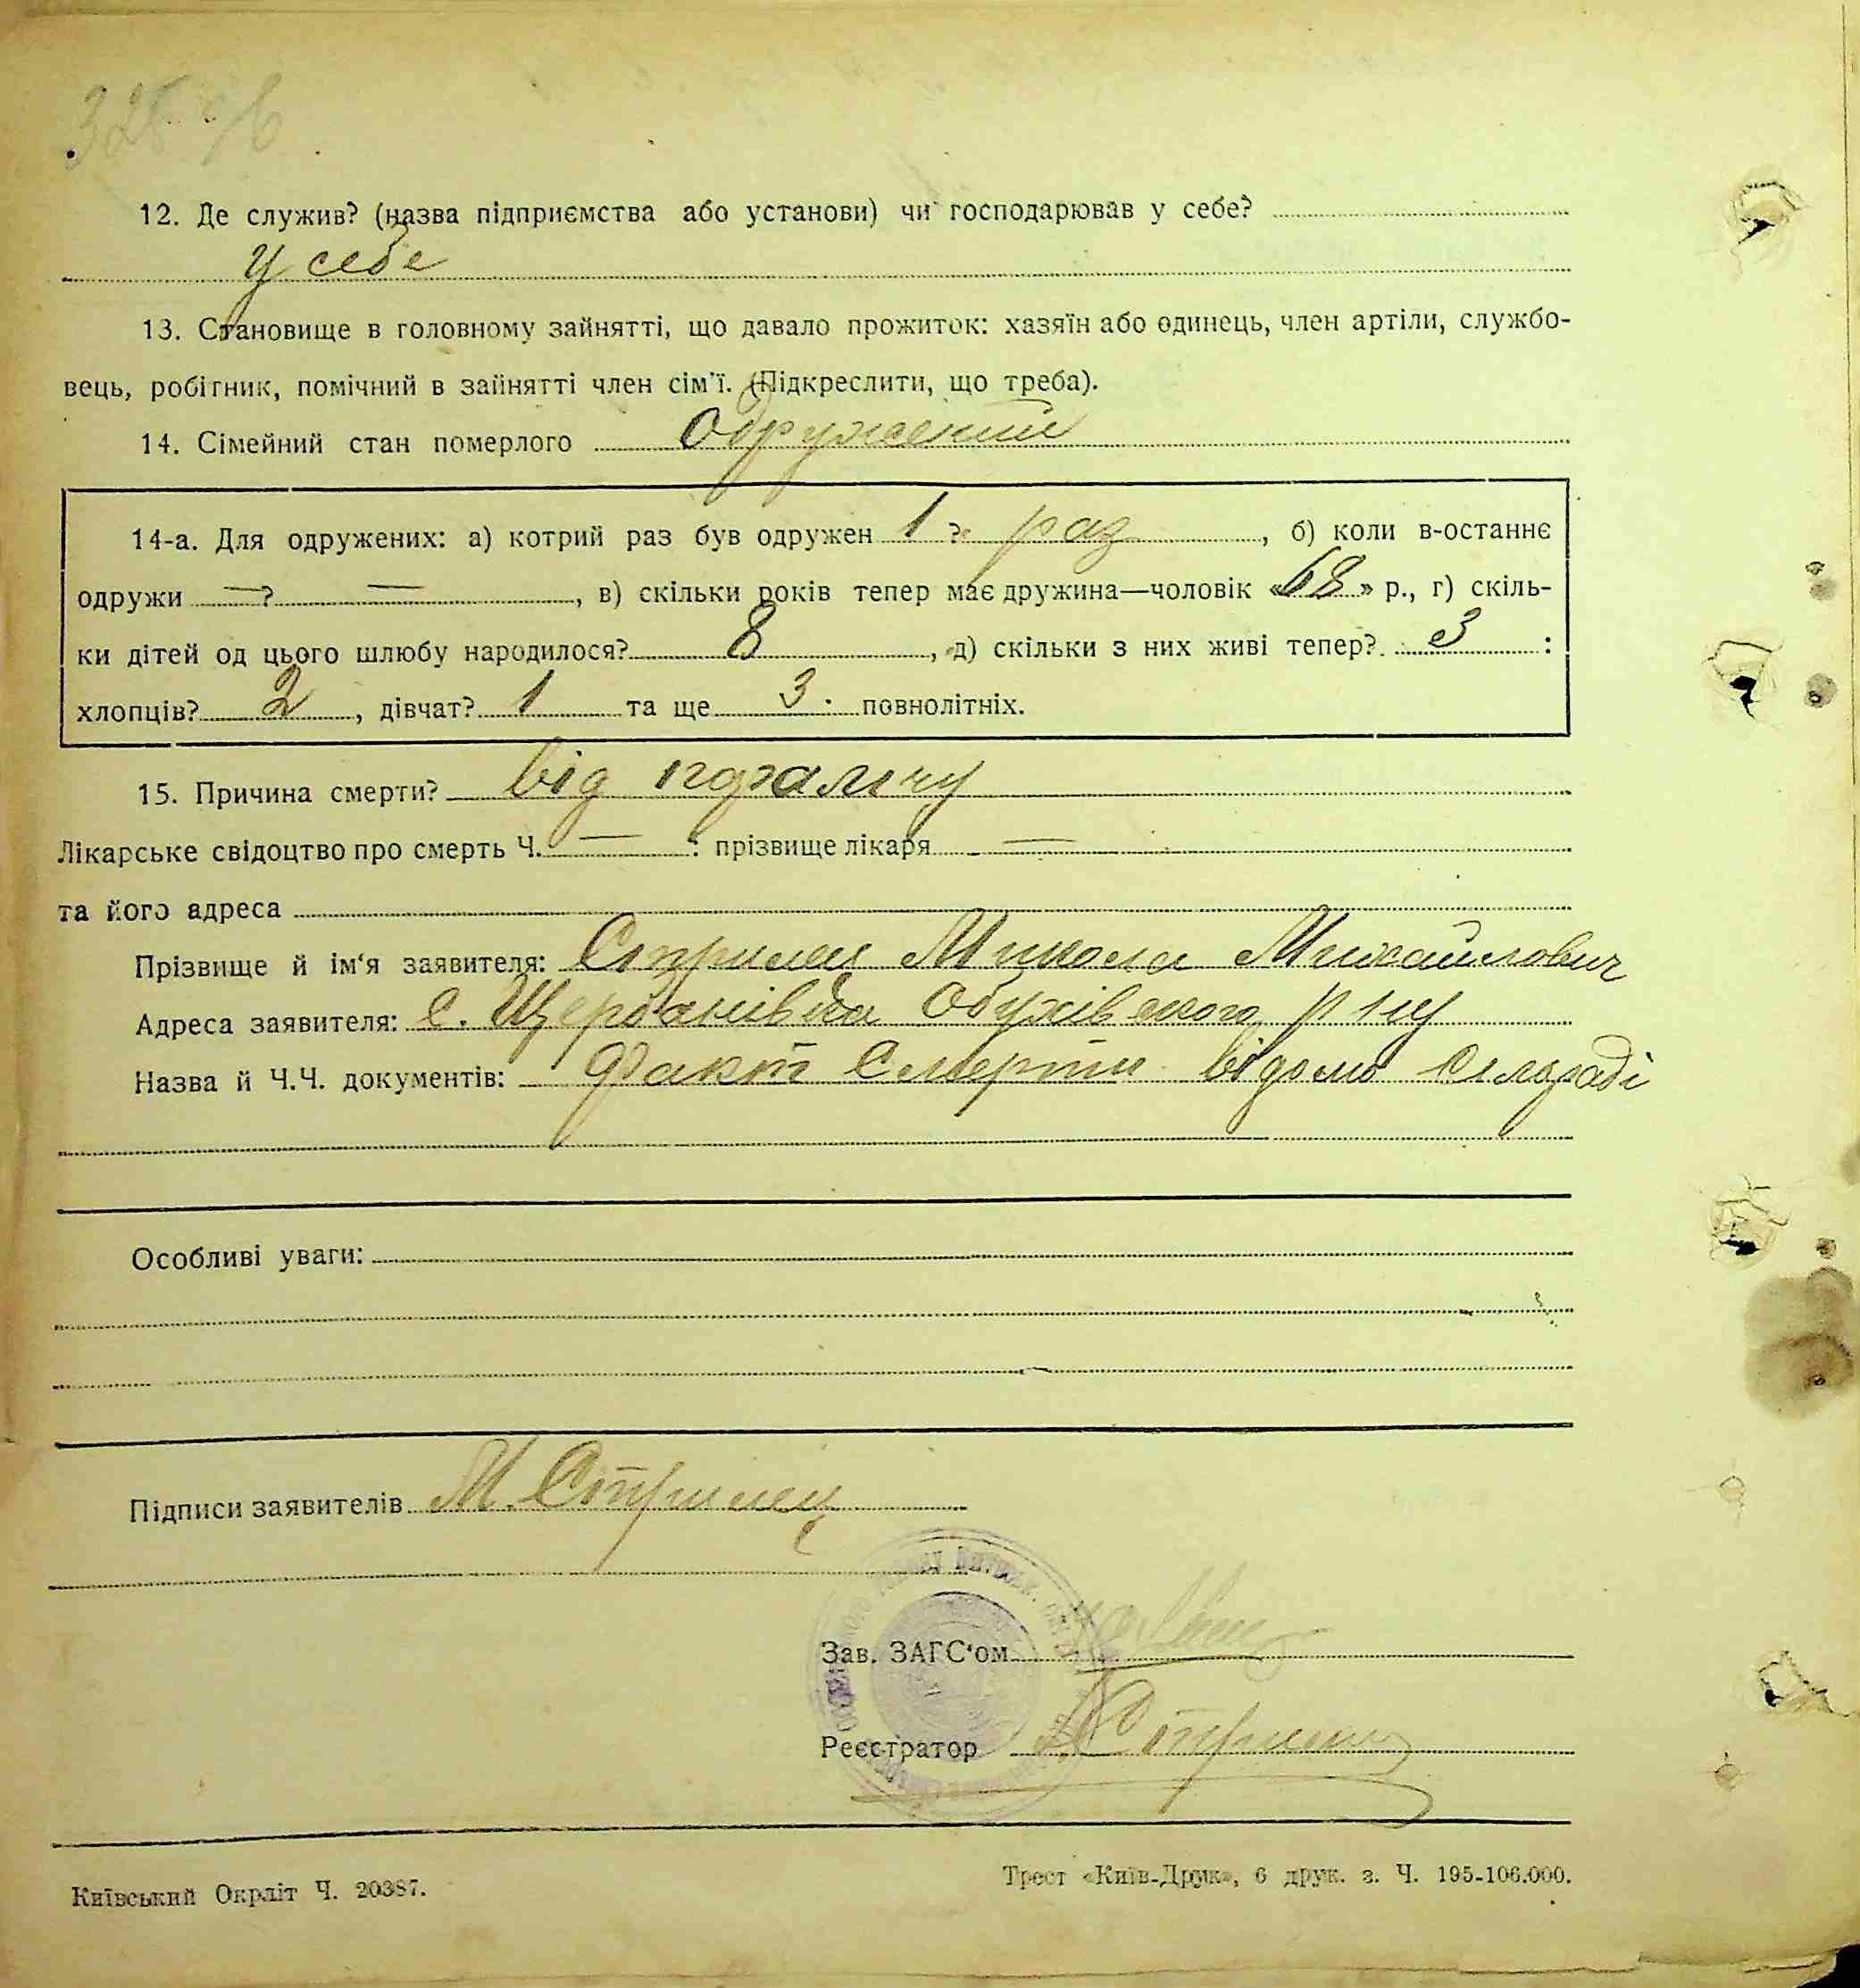 325 об
12. Де служив? (назва підприємства або установи) чи господарював у себе?
у себе
13. Становище в головному зайнятті, що давало прожиток: хазяїн або одинець, член артіли, службо-
вець, робітник, помічний в зайнятті член сім'ї. (Підкреслити, що треба).
14. Сімейний стан померлого одружений
14-а. Для одружених: а) котрий раз був одружен 1 ? раз, б) коли в-останнє
одружи — ? —, в) скільки років тепер має дружина—чоловік «68» р., г) скіль-
ки дітей од цього шлюбу народилося? 8, д) скільки з них живі тепер? 3 :
хлопців? 2, дівчат? 1 та ще 3. повнолітніх.
15. Причина смерти? від паралічу
Лікарське свідоцтво про смерть Ч. — : прізвище лікаря —
та його адреса
Прізвище й ім'я заявителя: Стрилец Микола Михайлович
Адреса заявителя: с. Щербанівка Обухівского р-ну
Назва й Ч.Ч. документів: Факт смерти відомо сільраді
Особливі уваги:
Підписи заявителів М. Стрилец
Зав. ЗАГС'ом
Реєстратор
Київський Окрліт Ч. 20387.
Трест «Київ-Друк», 6 друк. з. Ч. 195-106.000.